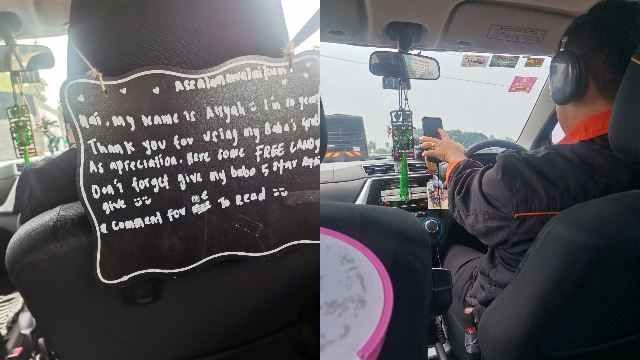 Assalamualaikum
Hai, my name is Aisyah I'm 10 year
Thank you for using my Baba's
As apreciation. Here some FREE CANDY
Don't forget give my baba 5 star
give
e Comment for me To Read